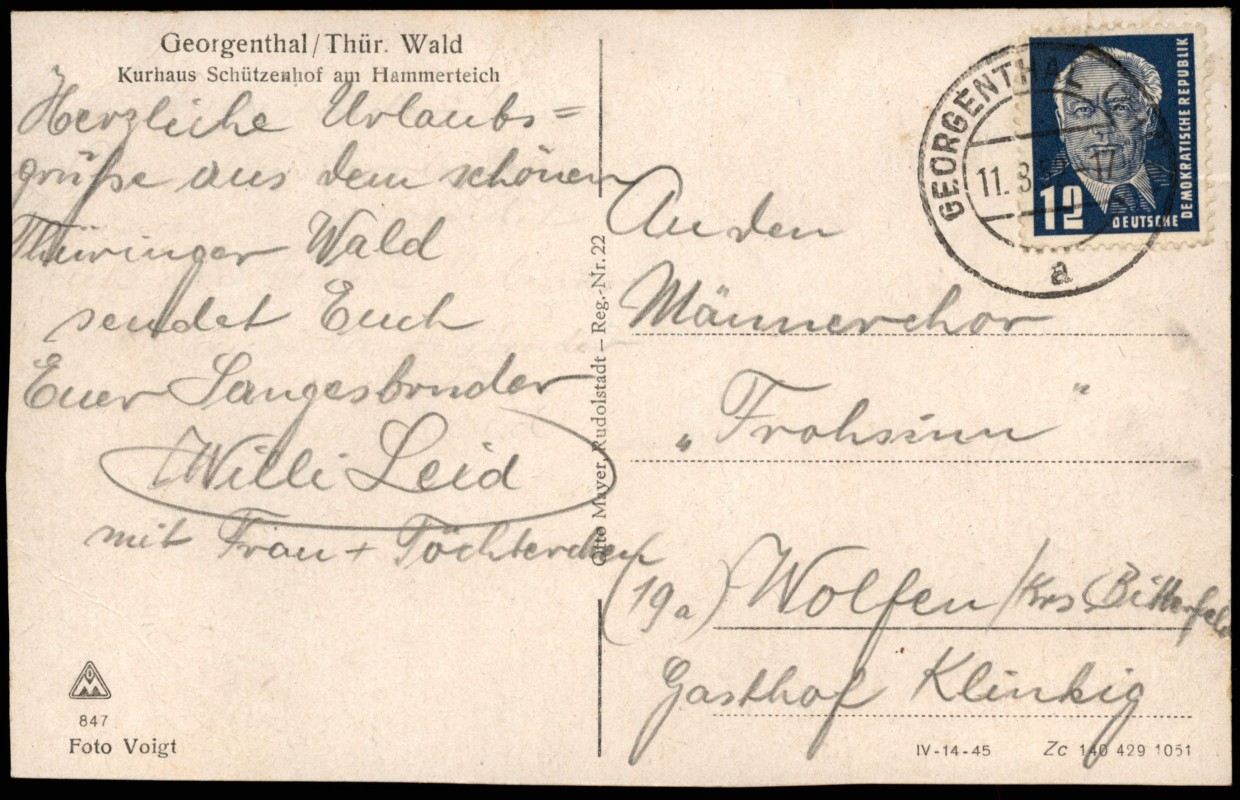 Georgenthal/Thür. Wald
Kurhaus Schützenhof am Hammerteich
Herzliche Urlaubs=
grüße aus dem schönen
Thüringer Wald
sendet Euch
Euer Sangesbruder
Willi Leid
mit Frau + Töchterchen
847
Foto Voigt
Otto Mayer, Rudolstadt – Reg.-Nr. 22
GEORGENTHAL
11. 8. 17
a
12
DEUTSCHE
DEMOKRATISCHE REPUBLIK
An den
Männerchor
„Frohsinn"
(19a) Wolfen/Krs. Bitterfeld
Gasthof Klinkig
IV-14-45 Zc 140 429 1051